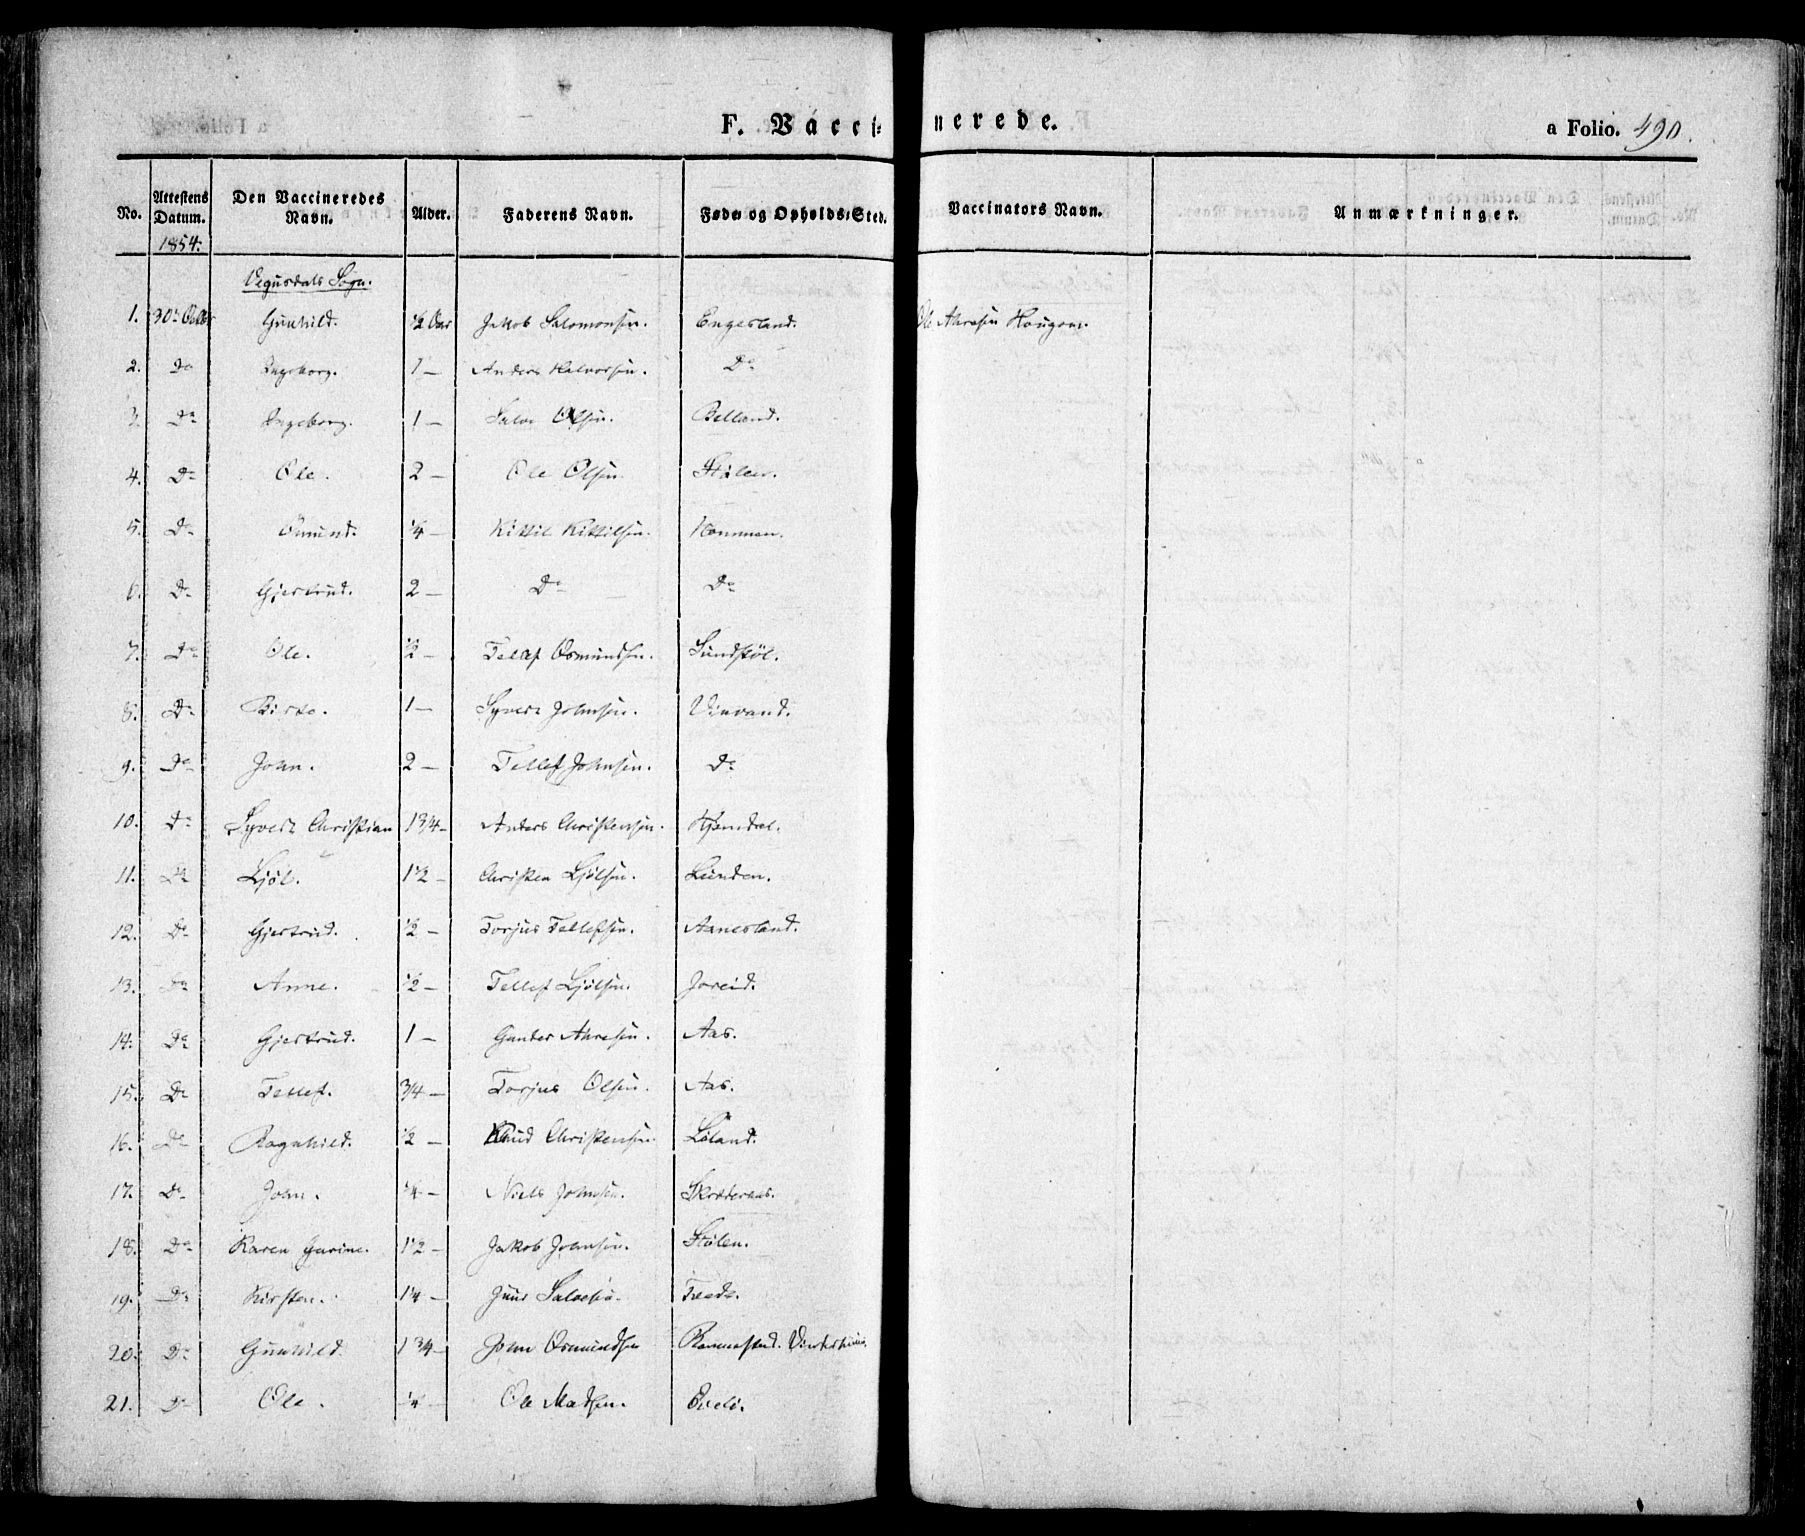 F. Vaccinerede.
a Folio. 490.
No. Attestens Datum. Den Vaccineredes Navn. Alder. Faderens Navn. Føde og Opholds-Sted. Vaccinators Navn. Anmærkninger.
1854.
Vegusdals Sogn.
1. 30te Octbr Gunhild. ½ Aar Jakob Salomonsen. Engesland. Ole Aanesen Hougom.
2. Do Ingeborg. 1 — Anders Halvorsen. Do
3. Do Ingeborg. 1 — Salve Olsen. Belland.
4. Do Ole. 2 — Ole Olsen Stølen.
5. Do Omund. ¼ — Kittil Kittilsen. Hommen.
6. Do Gjertrud. 2 — Do Do
7. Do Ole. ½ — Tellef Osmundsen. Sundskøl.
8. Do Birte. 1 — Syvert Johnsen. Vinvand.
9. Do John. 2 — Tellef Johnsen. Do
10. Do Syvert Christian 1¾ — Anders Christensen. Hjemdal.
11. Do Ljøl. 1½ — Christen Ljølsen. Lunden.
12. Do Gjertrud. ½ — Torjus Tellefsen. Aanesland.
13. Do Anne. ½ — Tellef Ljølsen. Joreid.
14. Do Gjertrud. 1 — Gunder Aanesen. Aas.
15. Do Tellef. ¾ — Torjus Olsen. Aas.
16. Do Ragnhild. ½ — Knud Christensen. Løland.
17. Do John. ¼ — Niels Johnsen. Skrøderaas.
18. Do Karen Gurine. 1½ — Jakob Johnsen. Stølen.
19. Do Kirsten. 1¼ — Salvesen. Tvedt.
20. Do Gunhild. 1¾ — John Osmundsen
21. Do Ole. ¼ — Ole Madsen.